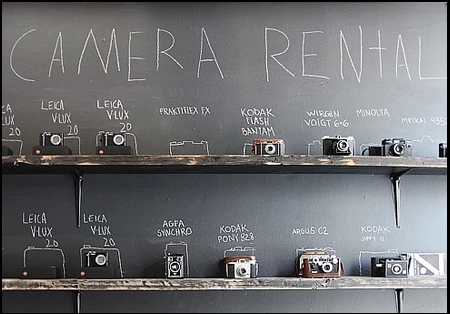 CAMERA RENTAL
LEICA
V-LUX
20
LEICA
V-LUX
20
PRAKTIFLEX FX
KODAK
FLASH
BANTAM
WIRGIN
VOIGT 6×6
MINOLTA
LUX
20
LEICA
V-LUX
20
LEICA
V-LUX
20
AGFA
SYNCHRO
KODAK
PONY 828
ARGUS C2
KODAK
JIFFY II